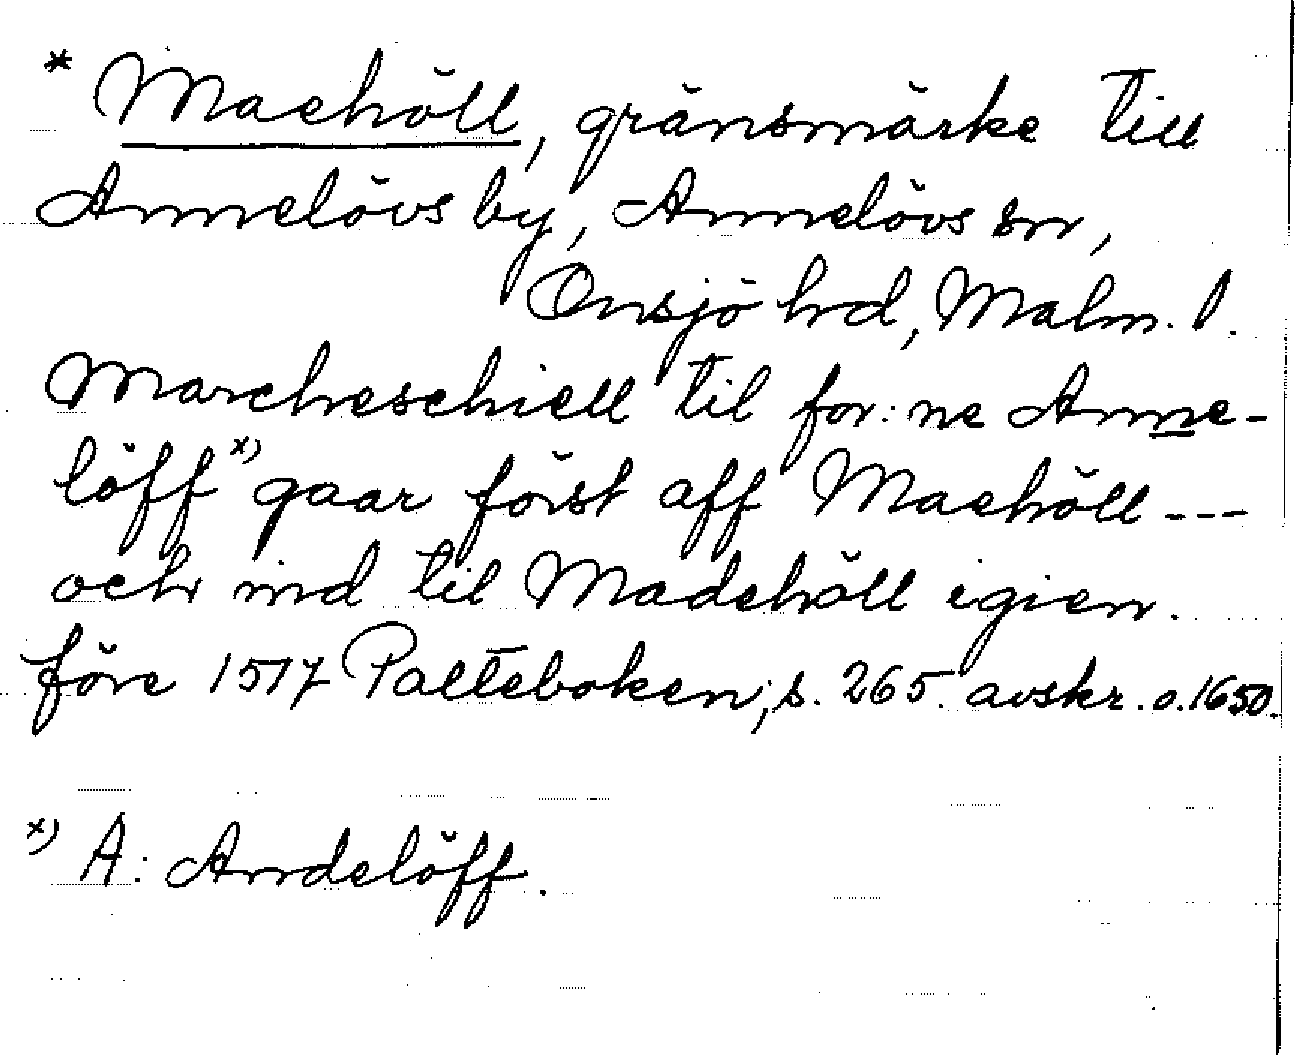 * Maehöll, gränsmärke till
Annelövs by, Annelövs sn,
Onsjö hd, Malm. l.
Marcheschiell til for:ne Anne-
löff x) gaar först aff Maehöll ---
och ind til Madehöll igien.
före 1517 Palteboken, s. 265. avskr. o. 1650.
x) A: Andelöff.